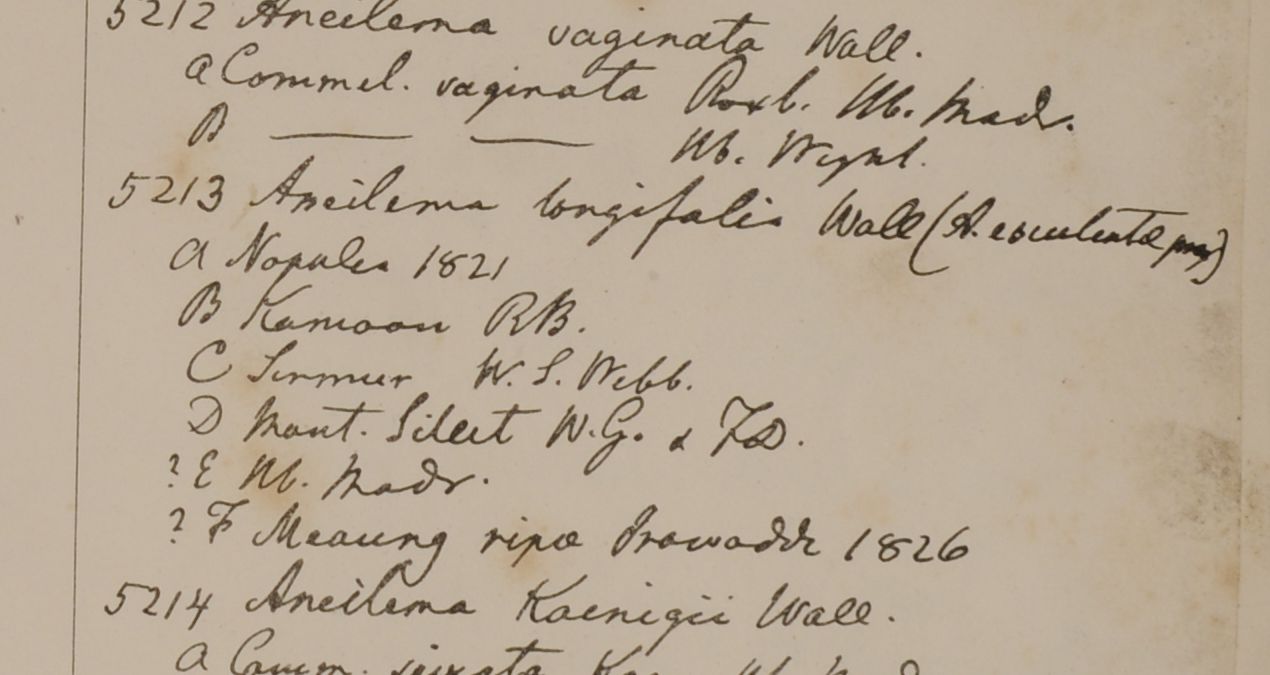 5212 Aneilema vaginata Wall.
a Commel. vaginata Roxb. Hb. Madr.
B — — Hb. Wight.
5213 Aneilema longifolia Wall (A. esculentæ prox)
a Napalia 1821
B Kamoon RB.
C Sirmur W. S. Webb.
D Mont. Sileet W.G. & FD.
? E Hb. Madr.
? F Meaung ripæ Irawaddi 1826
5214 Aneilema Koenigii Wall.
a Comm.